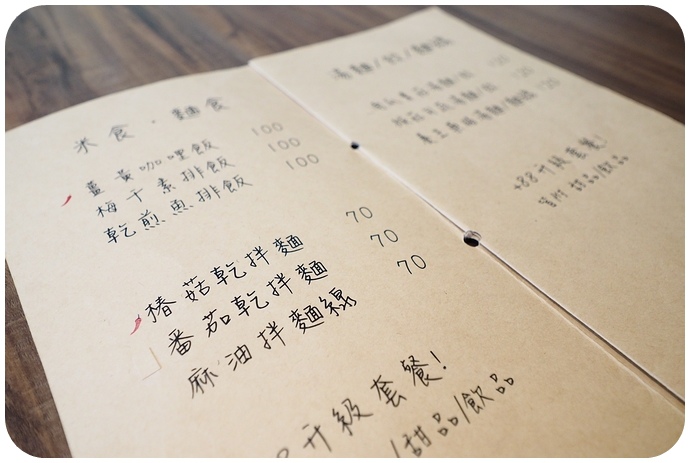 米食．麵食
薑黃咖哩飯 100
梅干素排飯 100
乾煎魚排飯 100
椿菇乾拌麵 70
番茄乾拌麵 70
麻油拌麵線 70
升級套餐!
/甜品/飲品
湯麵/粄/麵線
湯麵/粄
湯麵/粄
湯麵/麵線
+88升級套餐!
甜品/飲品